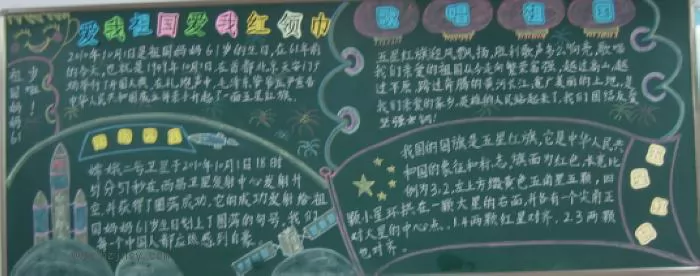 爱我祖国爱我红领巾
2010年10月1日是祖国妈妈61岁的生日,在61年前
的今天,也就是1949年10月1日,在首都北京天安门广
场举行了开国大典,在礼炮声中,毛泽东
中华人民共和国成立并亲手升起了一面五星红旗。
祖国妈妈61
岁啦!
嫦娥二号卫星于2010年10月1日18时
59分57秒在西昌卫星发射中心发射升
空,并获得了圆满成功,它的成功发射给祖
国妈妈61岁生日划上了圆满的句号,我们
每一个中国人都应该感到自豪。
歌唱祖国
五星红旗迎风飘扬,胜利歌声多么响亮,歌唱
我们亲爱的祖国从今走向繁荣富强。越过高山,越
过平原,跨过奔腾的黄河长江,宽广美丽的土地,是
我们亲爱的家乡。英雄的人民站起来了,我们团结友爱
坚强如钢!
我国的国旗是五星红旗,它是中华人民共
和国的象征和标志,旗面为红色,长宽比
例为3:2,左上方缀黄色五角星五颗,四
颗小星环拱在一颗大星的右面,并各有一个尖角正
对大星的中心点。1.4两颗红星对齐,2.3两颗
也对齐。